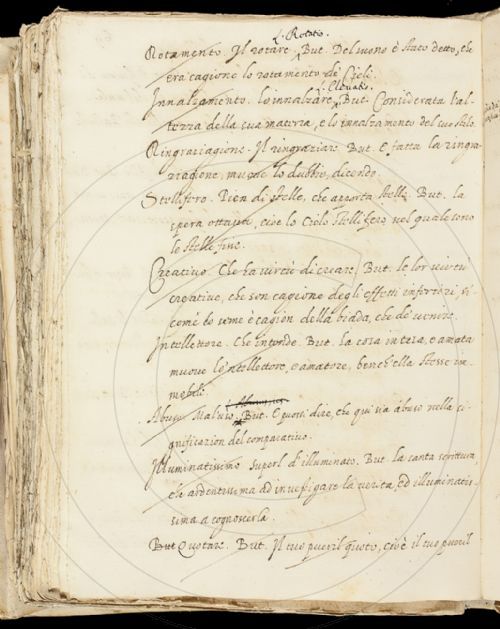 L. Rotato.
Rotamento. Il rotare. But. Del suono è stato detto, che
era cagione lo rotamento de' Cieli.
L. Eleuatio.
Innalzamento. lo innalzare. But. Considerata l'al-
tezza della sua materia, e lo innalzamento del suo stilo.
Ringraziagione. Il ringraziare. But. E fatta la ringra-
ziagione, muove lo dubbio, dicendo.
Stellifero. Pien di stelle, che apporta stelle. But. la
spera ottava, cioè lo Cielo stellifero, nel quale sono
le stelle fisse.
Creativo. Che ha virtù di creare. But. le lor virtù
creative, che son cagione degli effetti inferiori, si
come lo seme è cagion della biada, che de' venire.
Intellettore. Che intende. But. la cosa intesa, e amata
muove lo 'ntellettore, e amatore, bench'ella stesse im-
mobile.
Abuso. Maluso. But. E puossi dire, che qui sia abuso nella si-
gnificazion del comparativo.
Illuminatissimo. Superl. d'illuminato. But. la santa scrittura
è ardentissima ad investigare la verità, ed illuminatis-
sima a cognoscerla.
But Quotare. But. Il tuo pueril quoto, cioè il tuo pueril